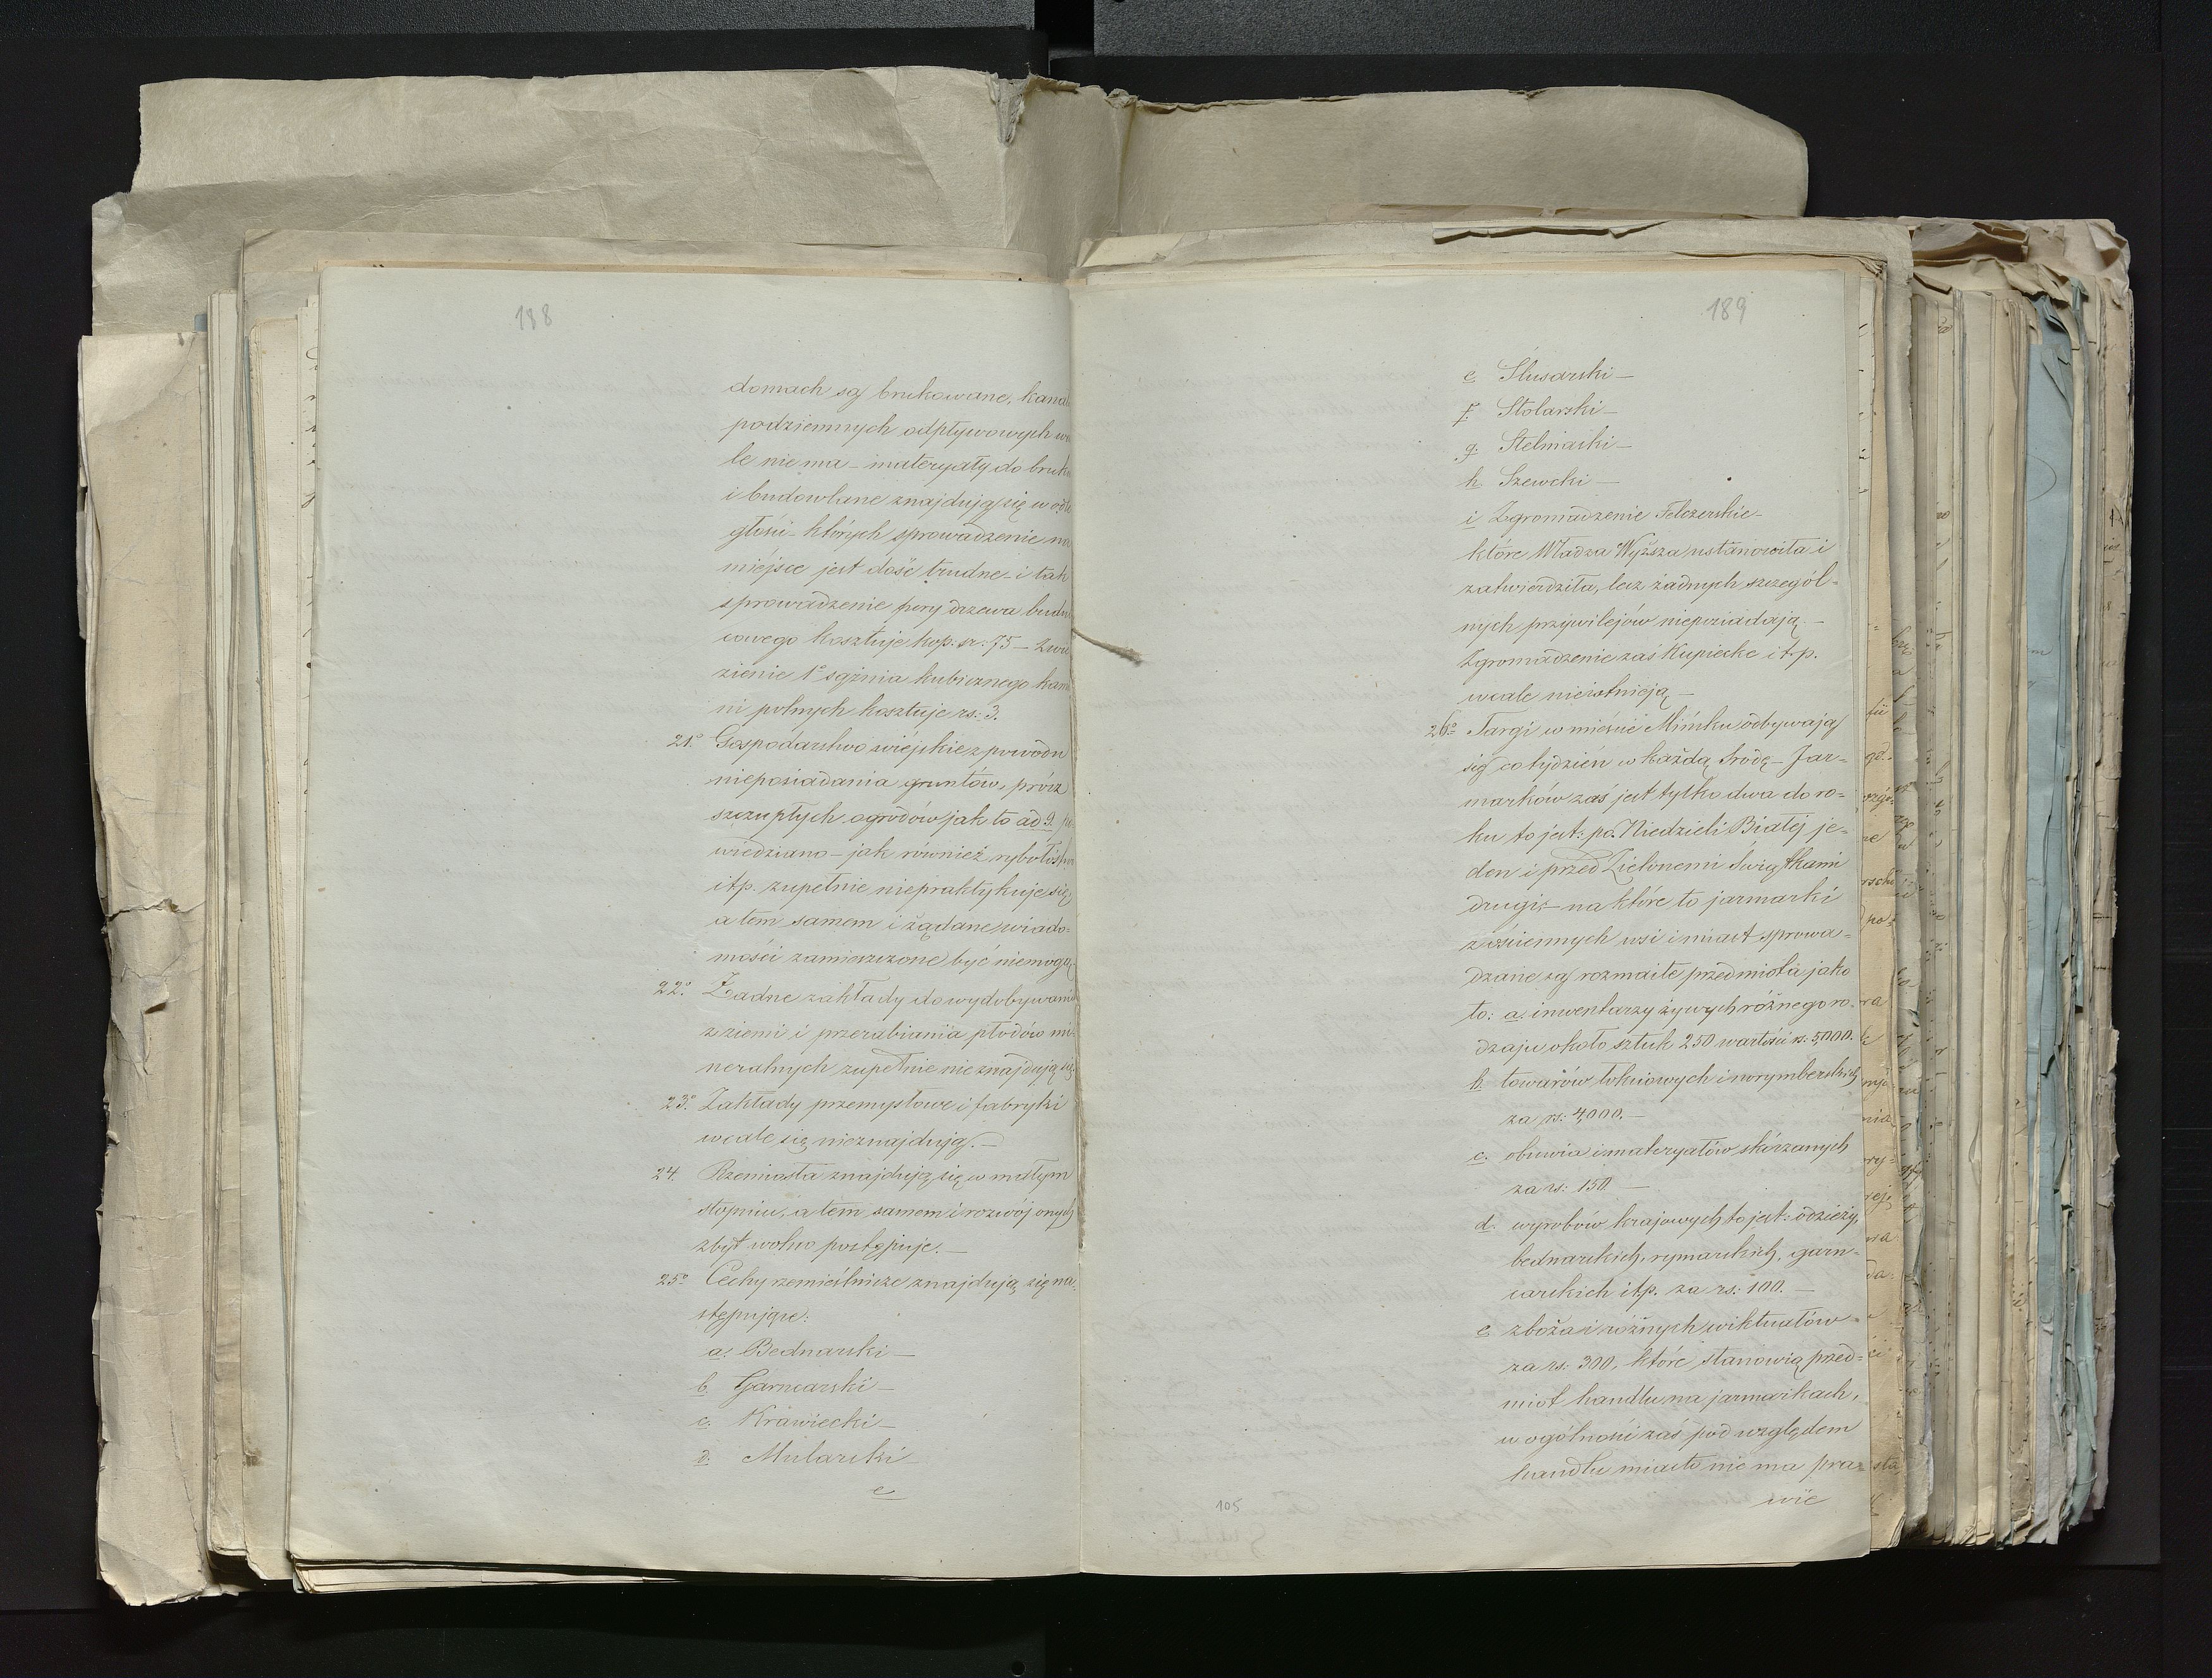 188
domach są brukowane, kana
podziemnych odpływowych w
le nie ma – materyały do bruk
i budowlane znajdują się w odle
głości – których sprowadzenie na
miéjsce jest dość trudne – i tak
sprowadzenie fury drzewa budo
cowego kosztuje kop. sr. 75 – zwie
zienie 1º sążnia kubicznego kami
ni polnych kosztuje rs: 3.
21º Gospodarstwo wiéjskie z powodu
nieposiadania gruntów, prócz
szczupłych ogrodów jak to ad 9. po
wiedziano – jak również rybołóstw
itp. zupełnie niepraktykuje się,
a tem samem i żądane wiado=
mości zamieszczone być niemogą
22º Żadne zakłady do wydobywania
z ziemi i przerabiania płodów mi=
neralnych zupełnie nieznajdują się
23º Zakłady przemysłowe i fabryki
wcale się nieznajdują. –
24. Rzemiosła znajdują się w małym
stopniu, a tem samem i rozwój onych
zbyt wolno postępuje. –
25º Cechy rzemieślnicze znajdują się na
stępujące:
a. Bednarski –
b. Garncarski –
c. Krawiecki –
d. Mularski –
e
189
e Ślusarski –
f. Stolarski –
g. Stelmaski –
h. Szewcki –
i Zgromadzenie Felczerskie –
które Władza Wyższa ustanowiła i
zatwierdziła, lecz żadnych szczegól=
nych przywilejów nieposiadają. –
Zgromadzenie zaś Kupieckie itp.
wcale nieistnieją –
26º Targi w mieście Mińsku odbywają
się co tydzień w każdą środę – Jar=
marków zaś jest tylko dwa do ro=
ku to jest: po Niedzieli Białej je=
den i przed Zielonemi Świątkami
drugi – na które to jarmarki
z ościennych wsi i miast sprowa=
dzane są rozmaite przedmiota jako
to: a. inwentarzy żywych różnego ro=
dzaju około sztuk 250 wartości rs. 5,000.
b. towarów łokciowych i norymberskich
za rs: 4,000. –
c. obuwia i materyałów skórzanych
za rs: 150. –
d. wyrobów krajowych to jest: odzieży,
bednarskich, rymarskich, garn=
carskich itp. za rs: 100. –
e zboża i różnych wiktuałów
za rs. 300, które stanowią przed=
miot handlu na jarmarkach,
w ogólności zaś pod względem
handlu miasto nie ma pra=
wie
105